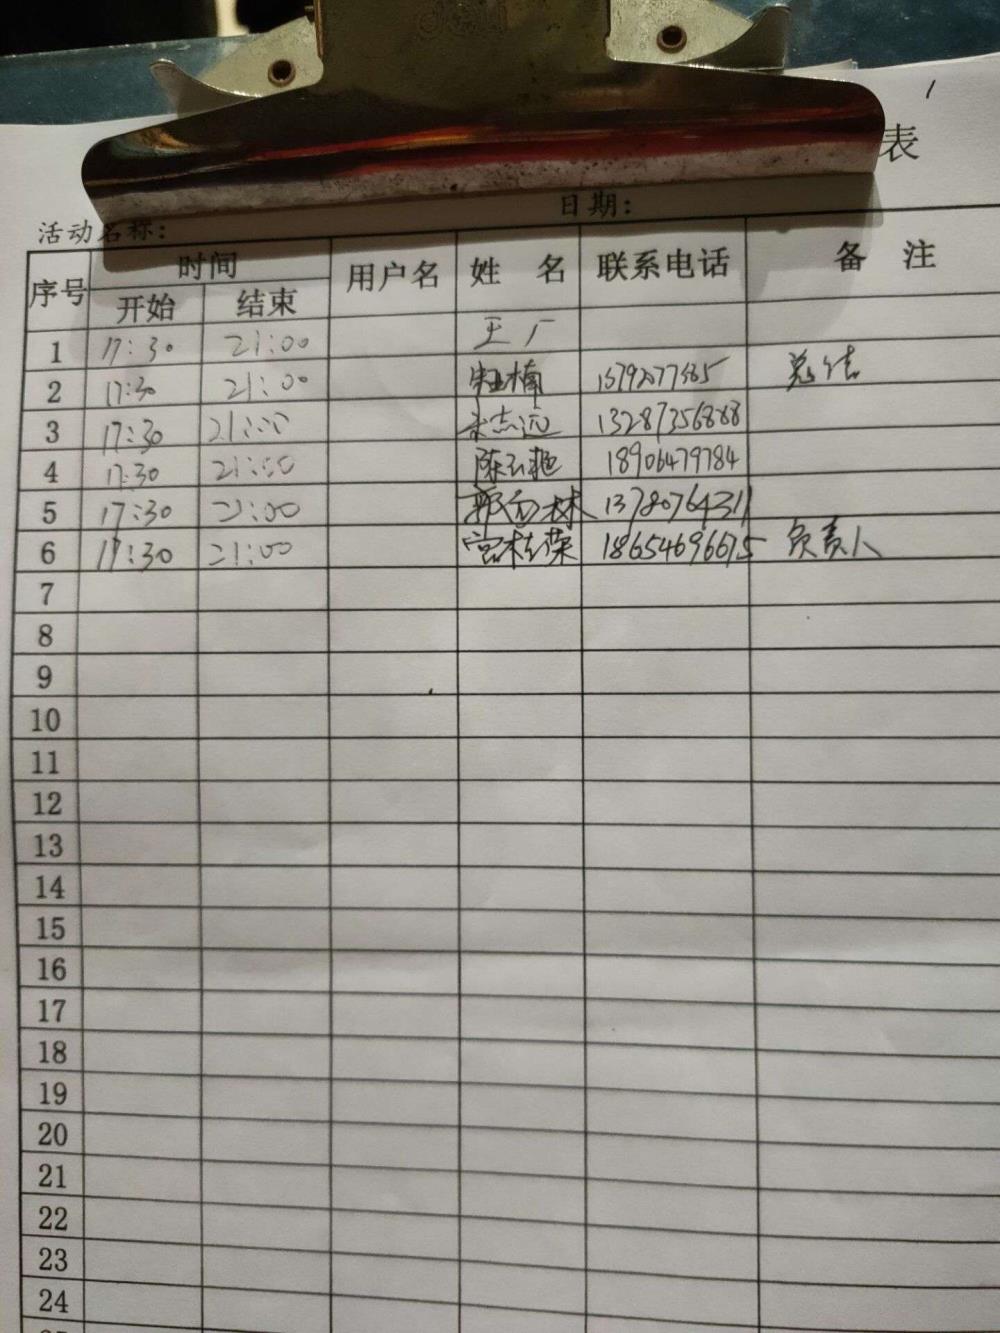 表
日期:
活动名称:
序号 时间 用户名 姓 名 联系电话 备 注
开始 结束
1 17:30 21:00 王广
2 17:30 21:00 楠 总结
3 17:30 21:00 志远 13287356888
4 17:30 21:00 陈云艳 18906479784
5 17:30 21:00 郭 林 13780764311
6 17:30 21:00 宫桂荣 18654696675 负责人
7
8
9
10
11
12
13
14
15
16
17
18
19
20
21
22
23
24